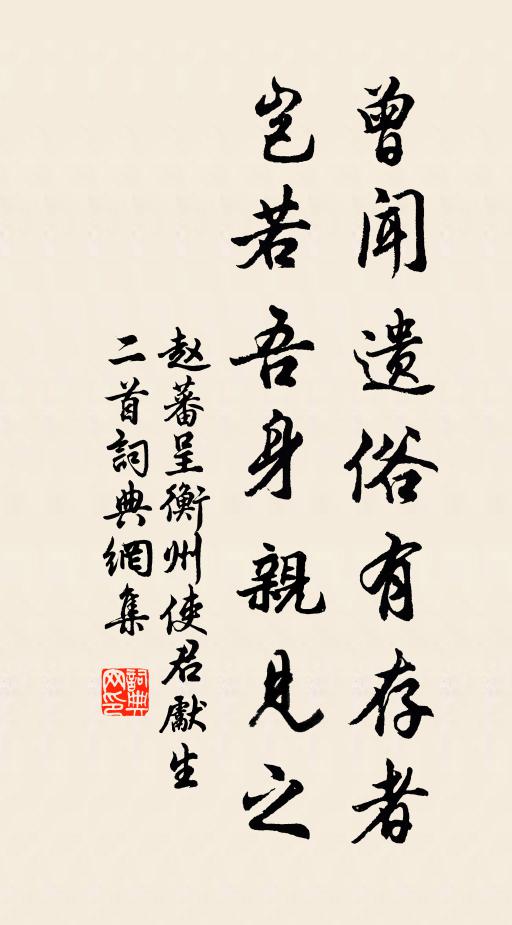 曾闻遗俗有存者
岂若吾身親見之
赵蕃呈衡州使君獻生
二首詞典網集
詞典网印